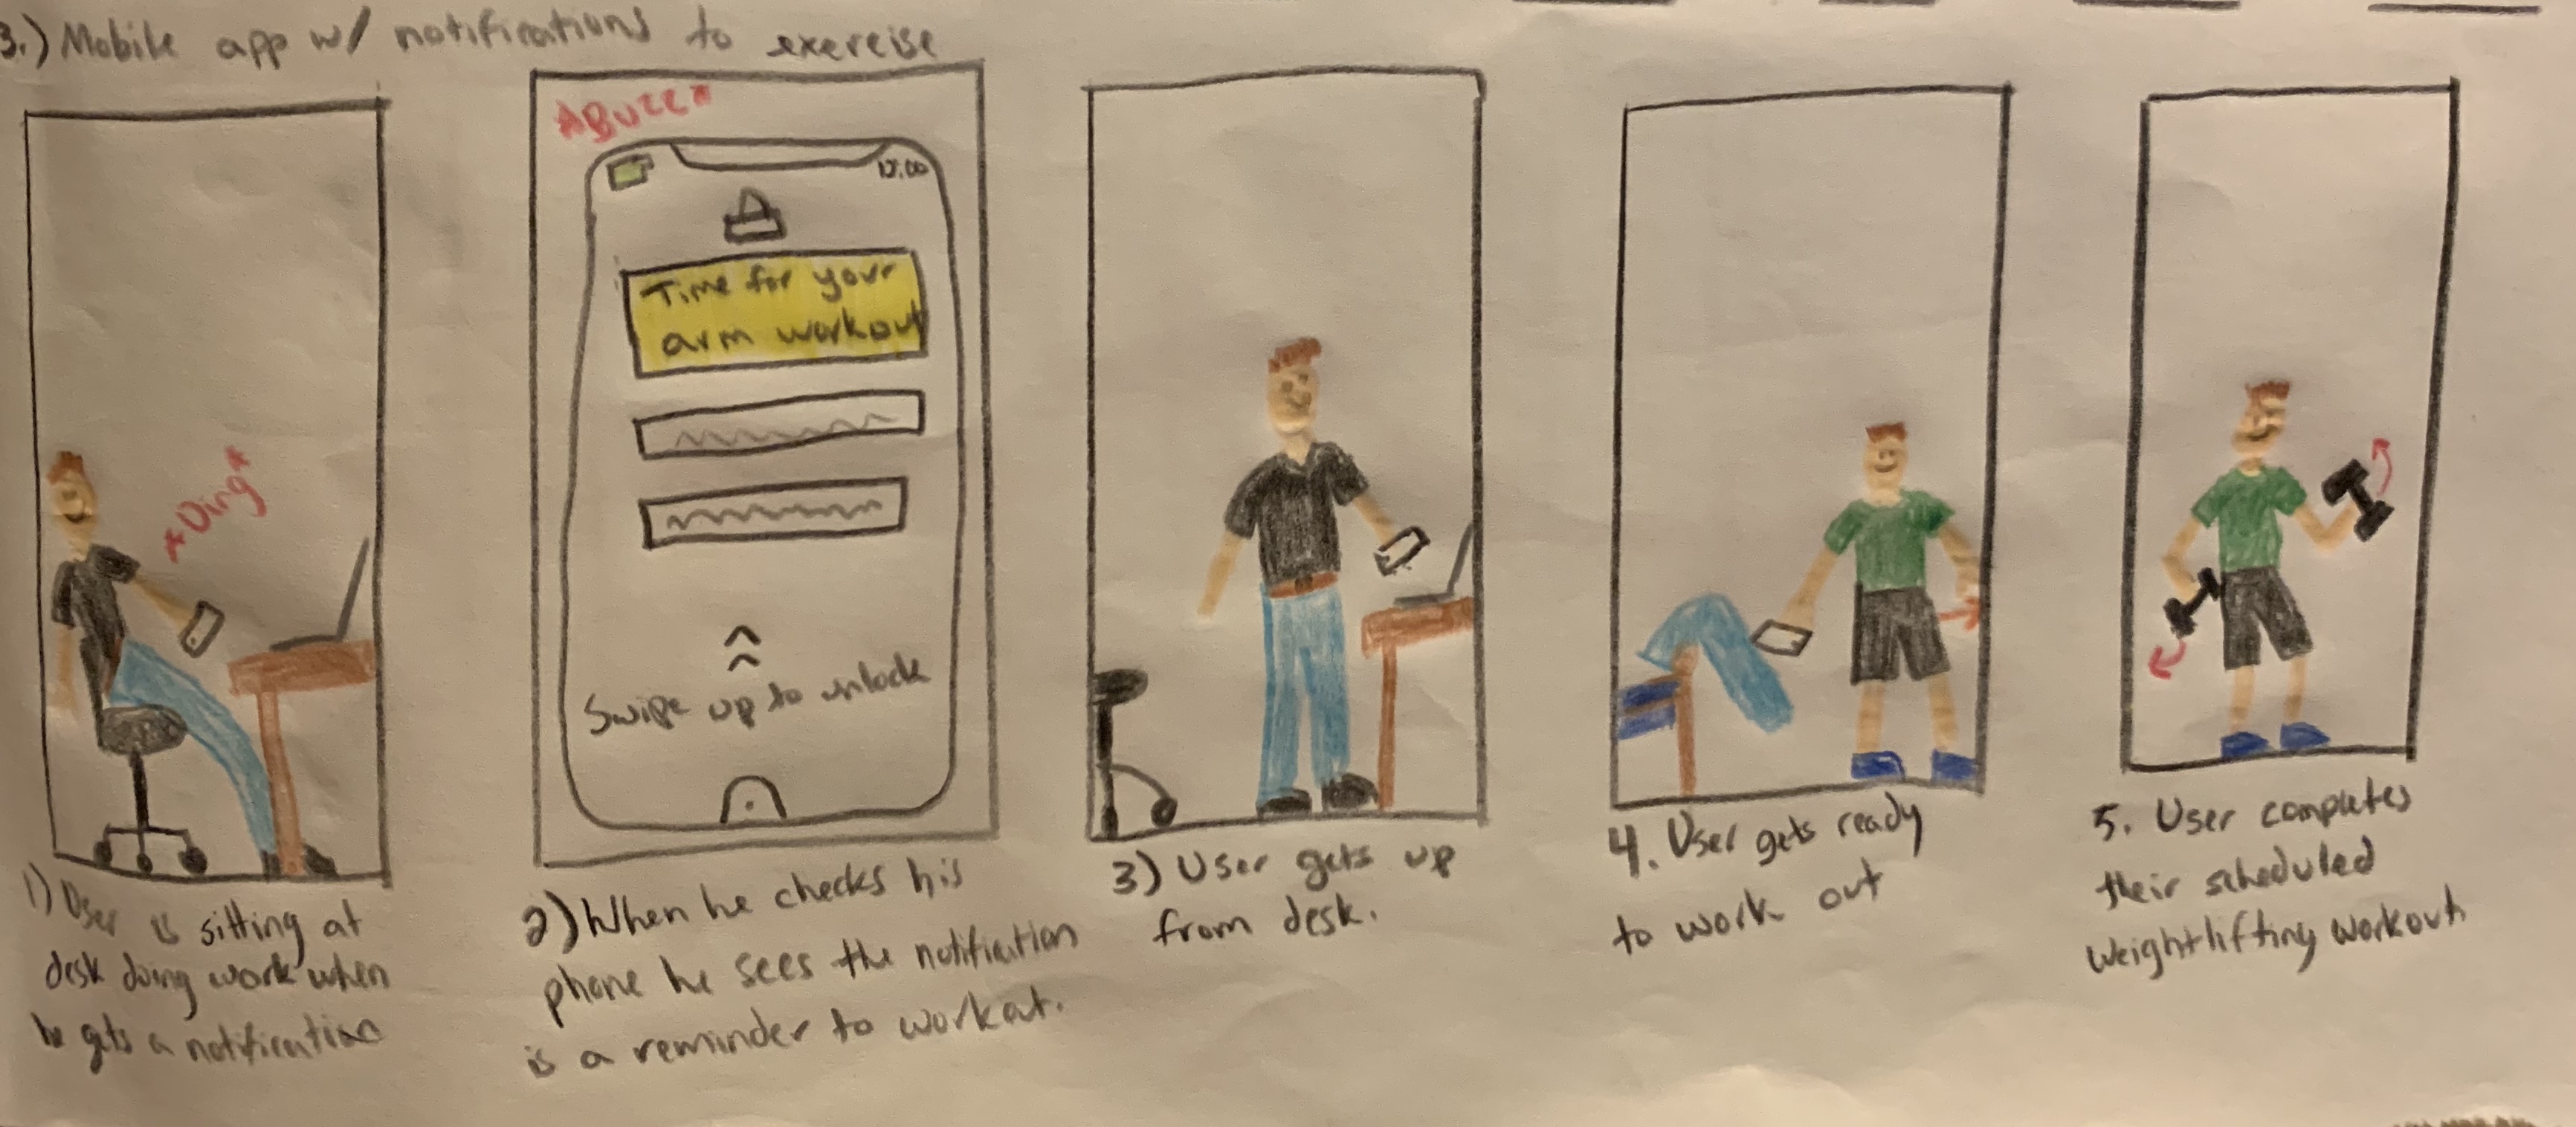 3.) Mobile app w/ notifications to exercise
*Ding*
1) User is sitting at
desk doing work when
he gets a notification
*Buzz*
12:00
Time for your
arm workout
Swipe up to unlock
2) When he checks his
phone he sees the notification
is a reminder to workout.
3) User gets up
from desk.
4. User gets ready
to work out
5. User completes
their scheduled
weightlifting workout